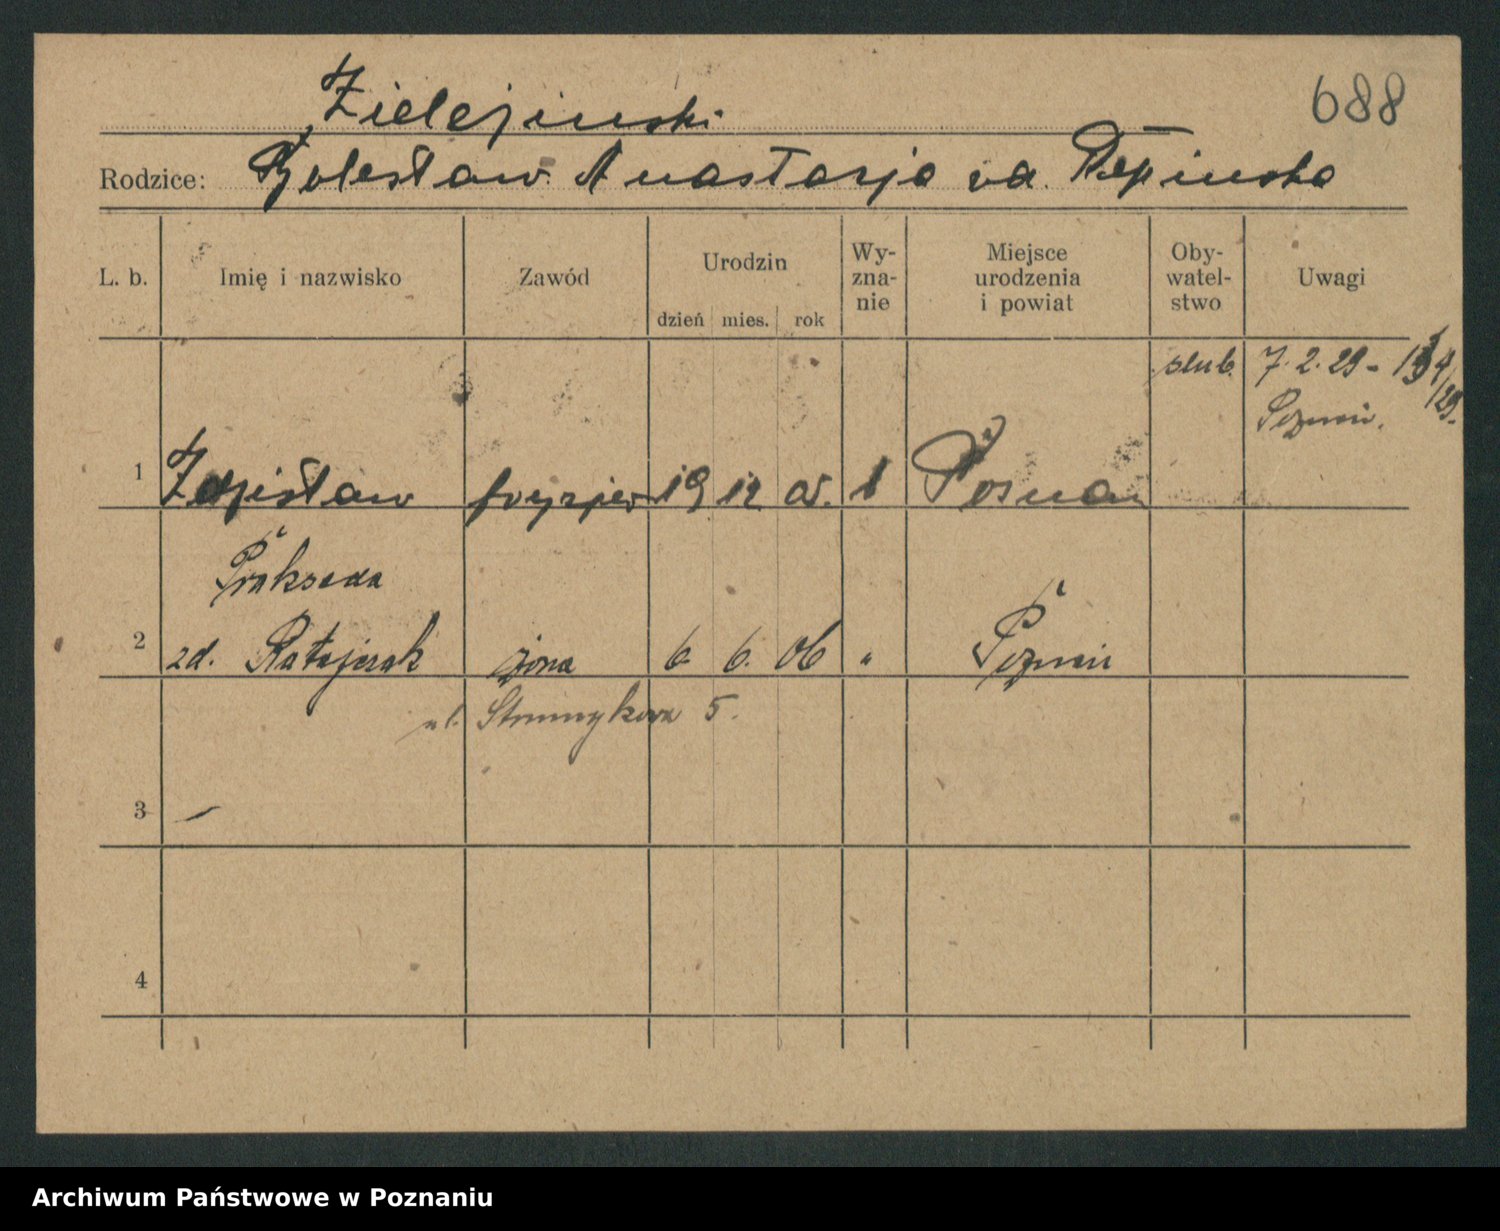 688
Zielejinski
Rodzice: Bolesław Anastazja zd. Rzepinska
L. b. Imię i nazwisko Zawód Urodzin Wy-zna-nie Miejsce urodzenia i powiat Oby-watel-stwo Uwagi
dzień mies. rok
ślub 7.2.29 -
Poznań.
1 Zdzisław fryzjer 19 12 05. 1 Poznań
Prakseda
2 zd. Ratajczak żona 6. 6. 06 " Poznań
ul. Strumykowa 5.
3 -
4
Archiwum Państwowe w Poznaniu